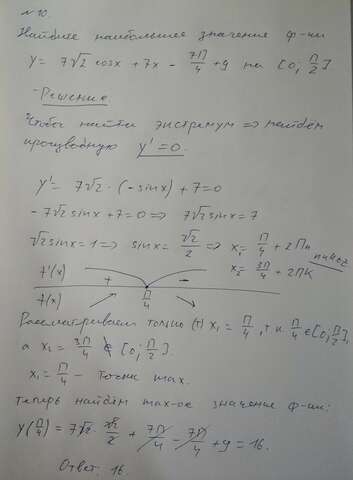 №10.
Найдите наибольшее значение ф-ии
y = 7√2 cosx + 7x - 7П/4 + 9 на [0; П/2]
- Решение
Чтобы найти экстремум => найдём
производную y' = 0.
y' = 7√2 · (-sinx) + 7 = 0
- 7√2 sinx + 7 = 0 => 7√2 sinx = 7
√2 sinx = 1 => sinx = √2/2 => x₁ = П/4 + 2Пn
x₂ = 3П/4 + 2ПК
f'(x) + -
f(x) П/4
Рассматриваем только (т) x₁ = П/4, т.к. П/4 ∈ [0; П/2],
а x₂ = 3П/4 ∉ [0; П/2].
x₁ = П/4 - точка max.
теперь найдём max-ое значение ф-ии:
y(П/4) = 7√2 · √2/2 + 7П/4 - 7П/4 + 9 = 16.
Ответ: 16.